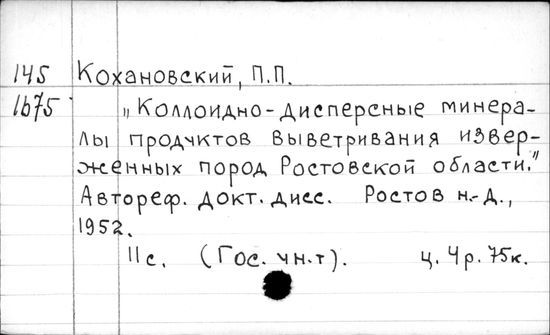 145 Кохановский, П.П.
1675 „Коллоидно-дисперсные минера-
лы продуктов выветривания извер-
женных пород Ростовской области."
Автореф. докт. дисс. Ростов н.-Д.,
1952.
11с. (Гос. ун.т). ц. 4р. 75к.